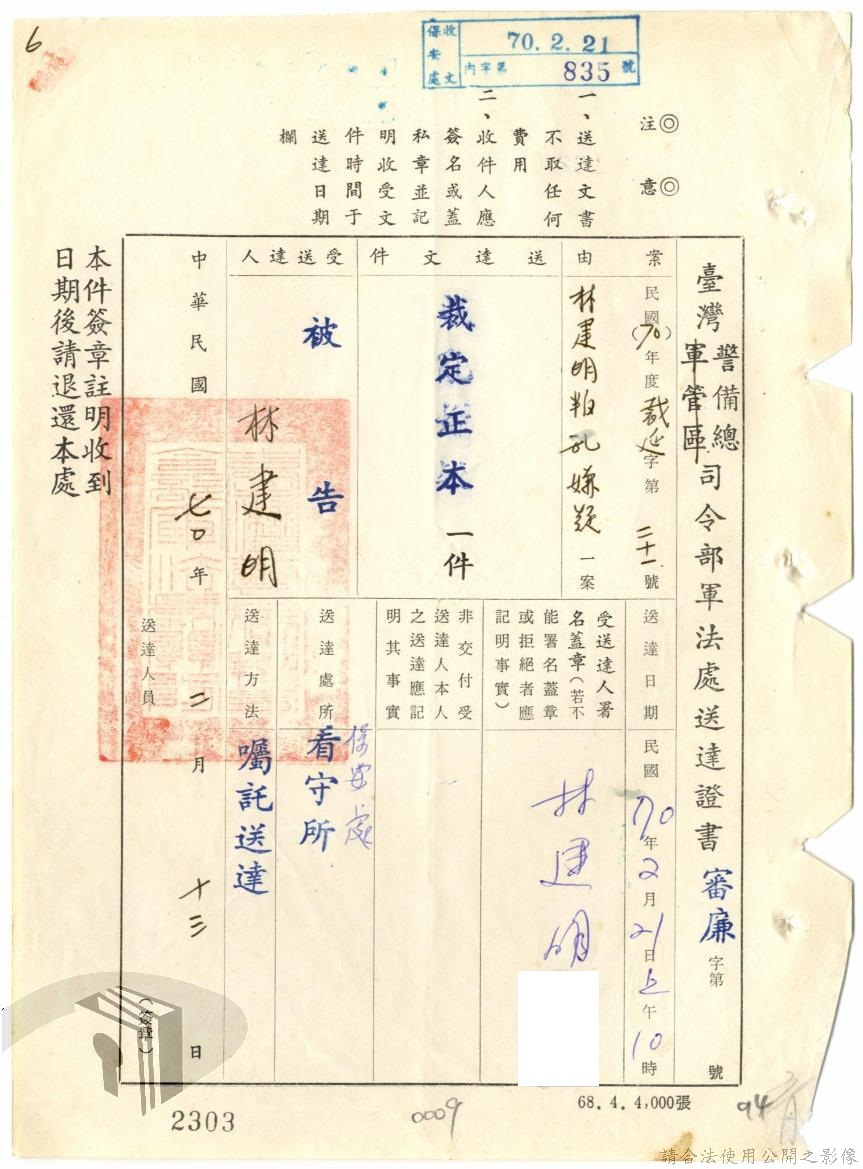 6
保安處
收文
70.2.21
內字第835號
◎注意◎
一、送達文書
不取任何
費用
二、收件人應
簽名或蓋
私章並記
明收受文
件時間于
送達日期
欄
臺灣警備總軍管區司令部軍法處送達證書 審廉字第 號
案由
民國(70)年度裁延字第二十一號
林建明叛乱嫌疑一案
送達文件
裁定正本一件
受送達人
被告
林建明
送達日期
民國70年2月21日上午10時
受送達人署
名蓋章(若不
能署名蓋章
或拒絕者應
記明事實)
林建明
非交付受
送達人本人
之送達應記
明其事實
送達處所
保安處
看守所
送達方法
囑託送達
中華民國七〇年二月十三日
送達人員 (簽章)
本件簽章註明收到
日期後請退還本處
68.4.4,000張
2303
0009
94
請合法使用公開之影像